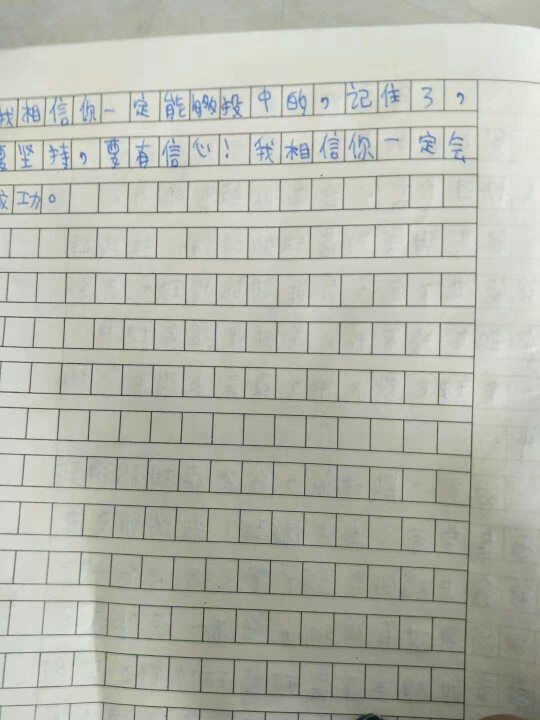 我相信你一定能够投中的，记住了，
要坚持，要有信心！我相信你一定会
成功。